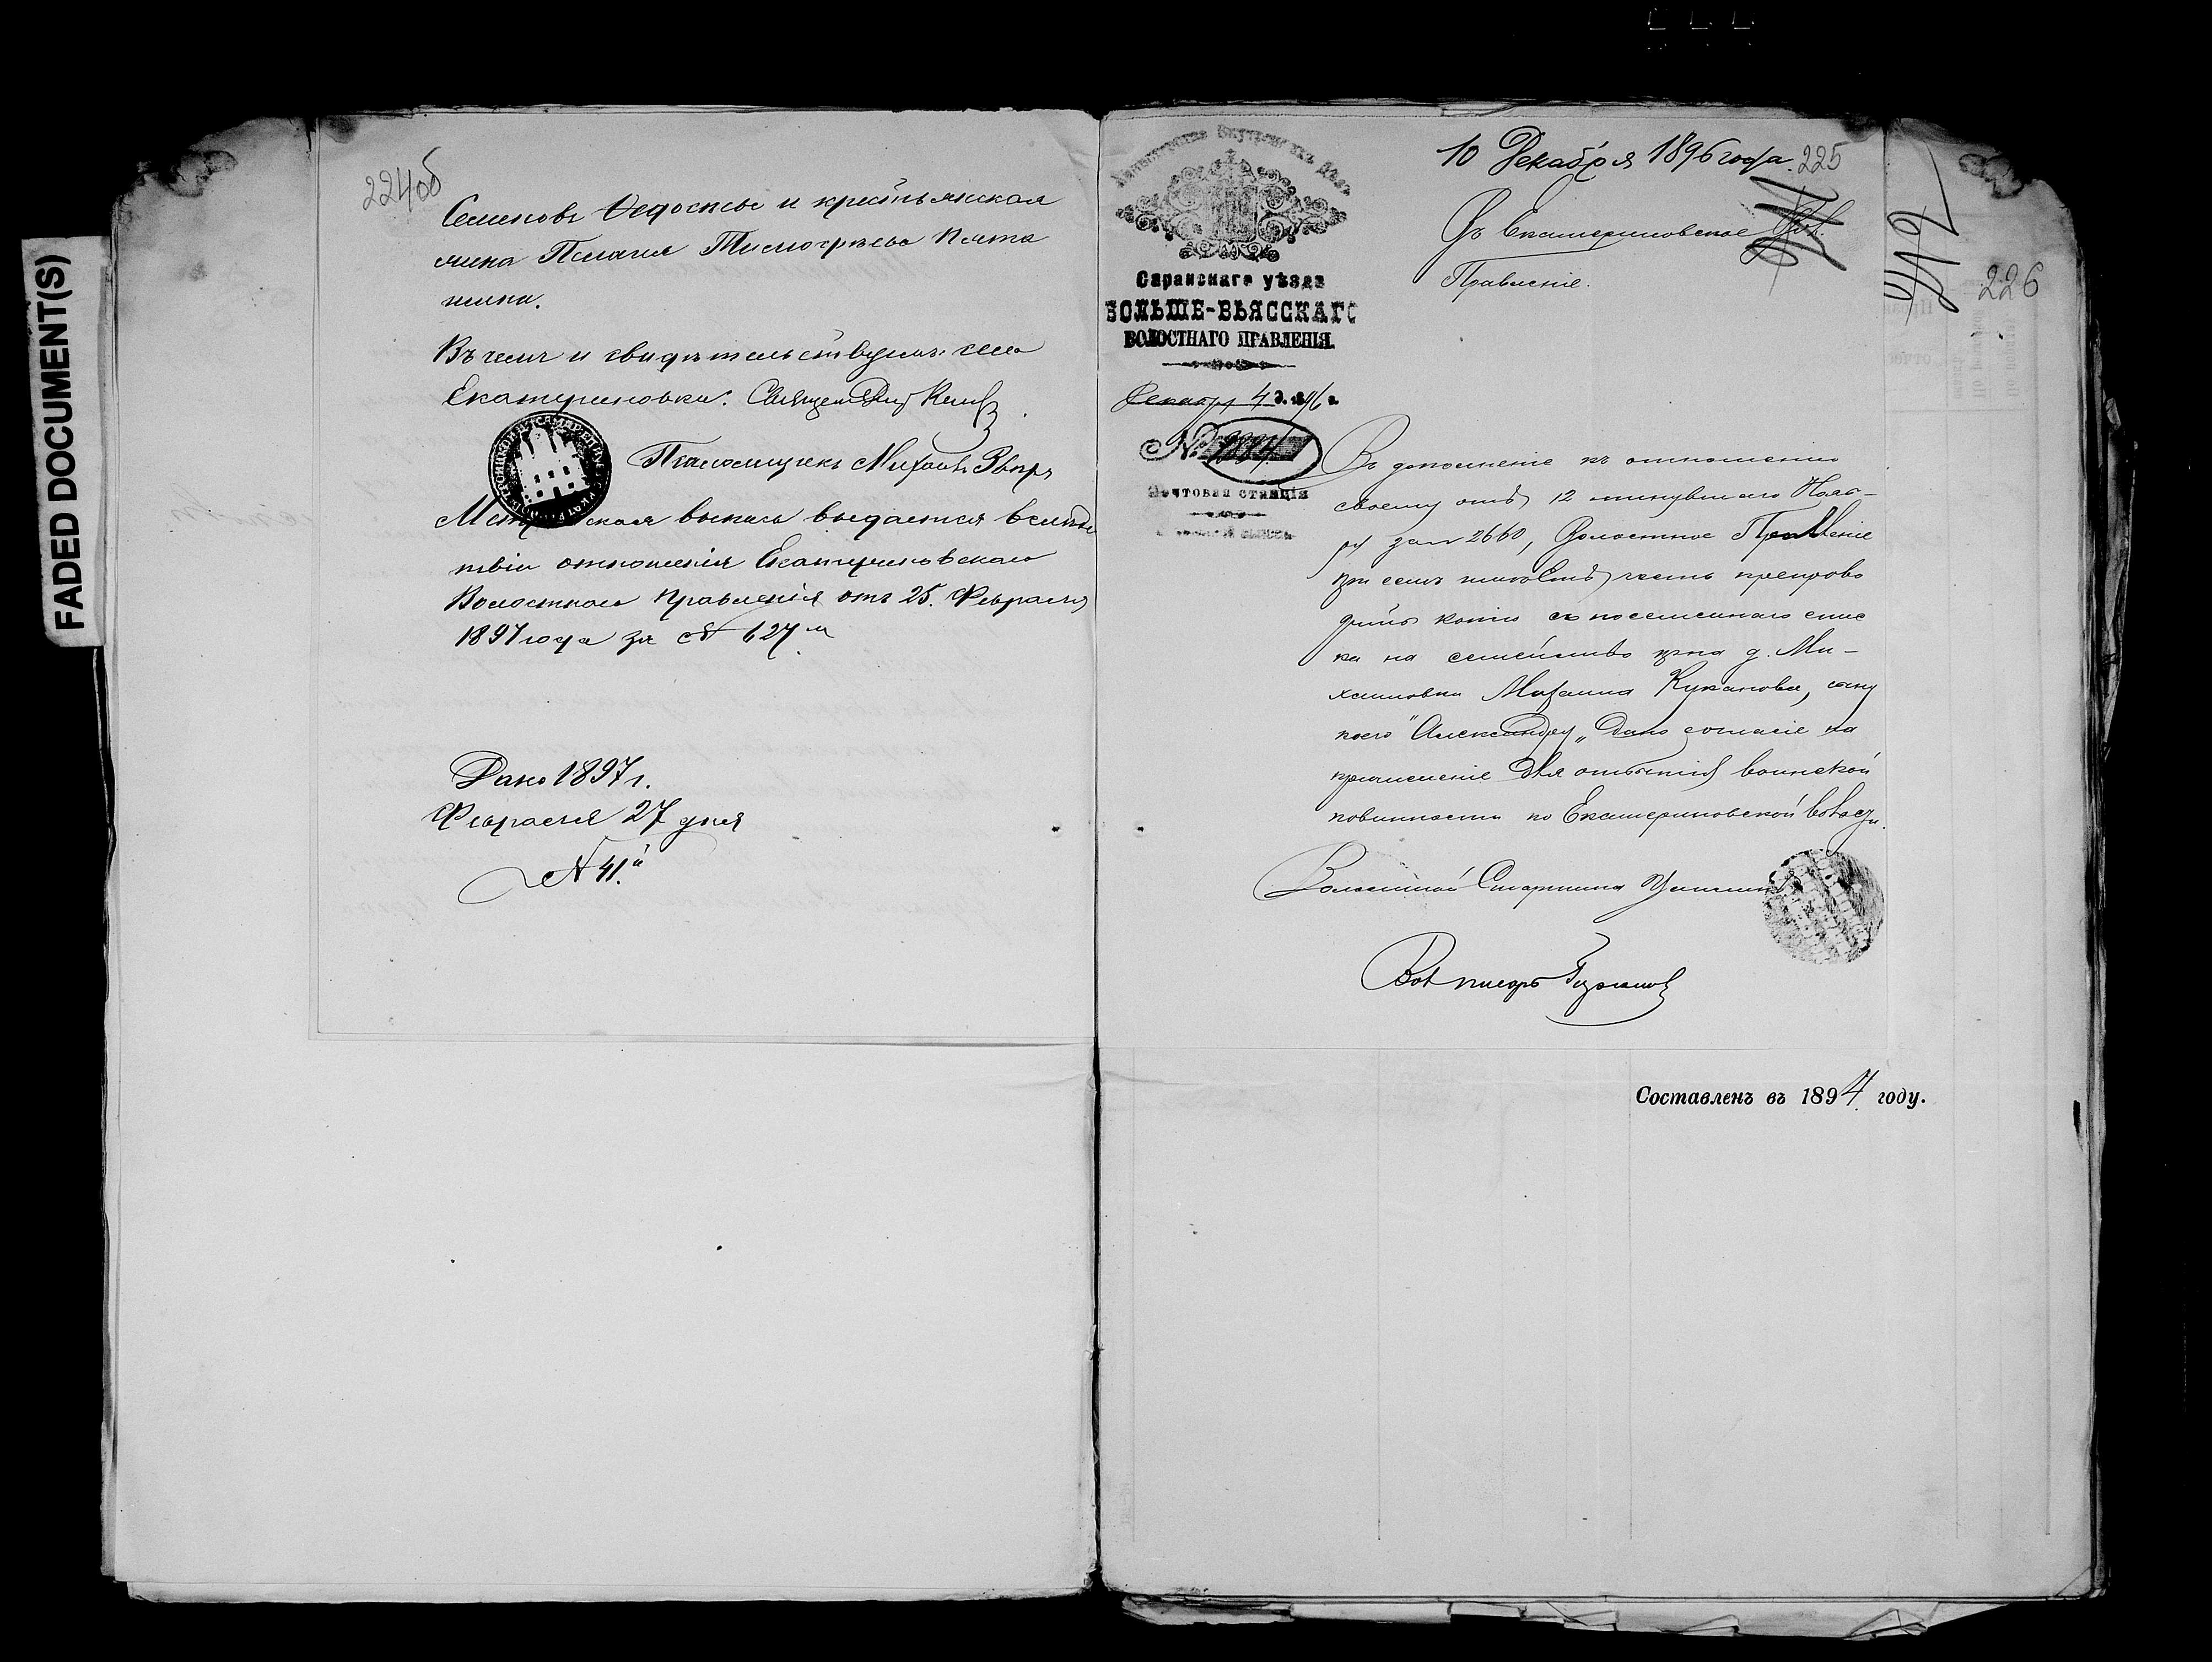 FADED DOCUMENT(S)
224об
Семеновъ Федосѣевъ и крестьянская
жена Пелагия Тимофѣева Пята
кина.
Въ чемъ и свидѣтельствуемъ: села
Екатериновки. Священ
Псаломщикъ Михаилъ
Метрическая выпись выдается вслѣдс
твіи отношенія Екатериновскаго
Волостнаго Правленія отъ 25. Февраля
1897 года за № 627м
Дано 1897 г.
Февраля 27 дня
№ 41.й
Министерства Внутреннихъ Дѣлъ
Саранскаго уѣзда
БОЛЬШЕ-ВЬЯССКАГО
ВОЛОСТНАГО ПРАВЛЕНІЯ.
Декабря 4 д. 1896 г.
№
Почтовая станція
10 Декабря 1896 года.
225
Въ Екатериновское Вол.
Правленіе.
242
226
Въ дополненіе къ отношенію
своему отъ 12 минувшаго Нояб-
ря за № 2660, Волостное Правленіе
при семъ имѣетъ честь препрово
дить копію съ посемейнаго спис
ка на семейство кр-на д. Ми-
хаиловки Михаила Куканова, сыну
коего "Александру" дано согласіе на
причисленіе для отбытія воинской
повинности по Екатериновской волости.
Волостной Старшина
Вол писарь
Составленъ въ 1894 году.